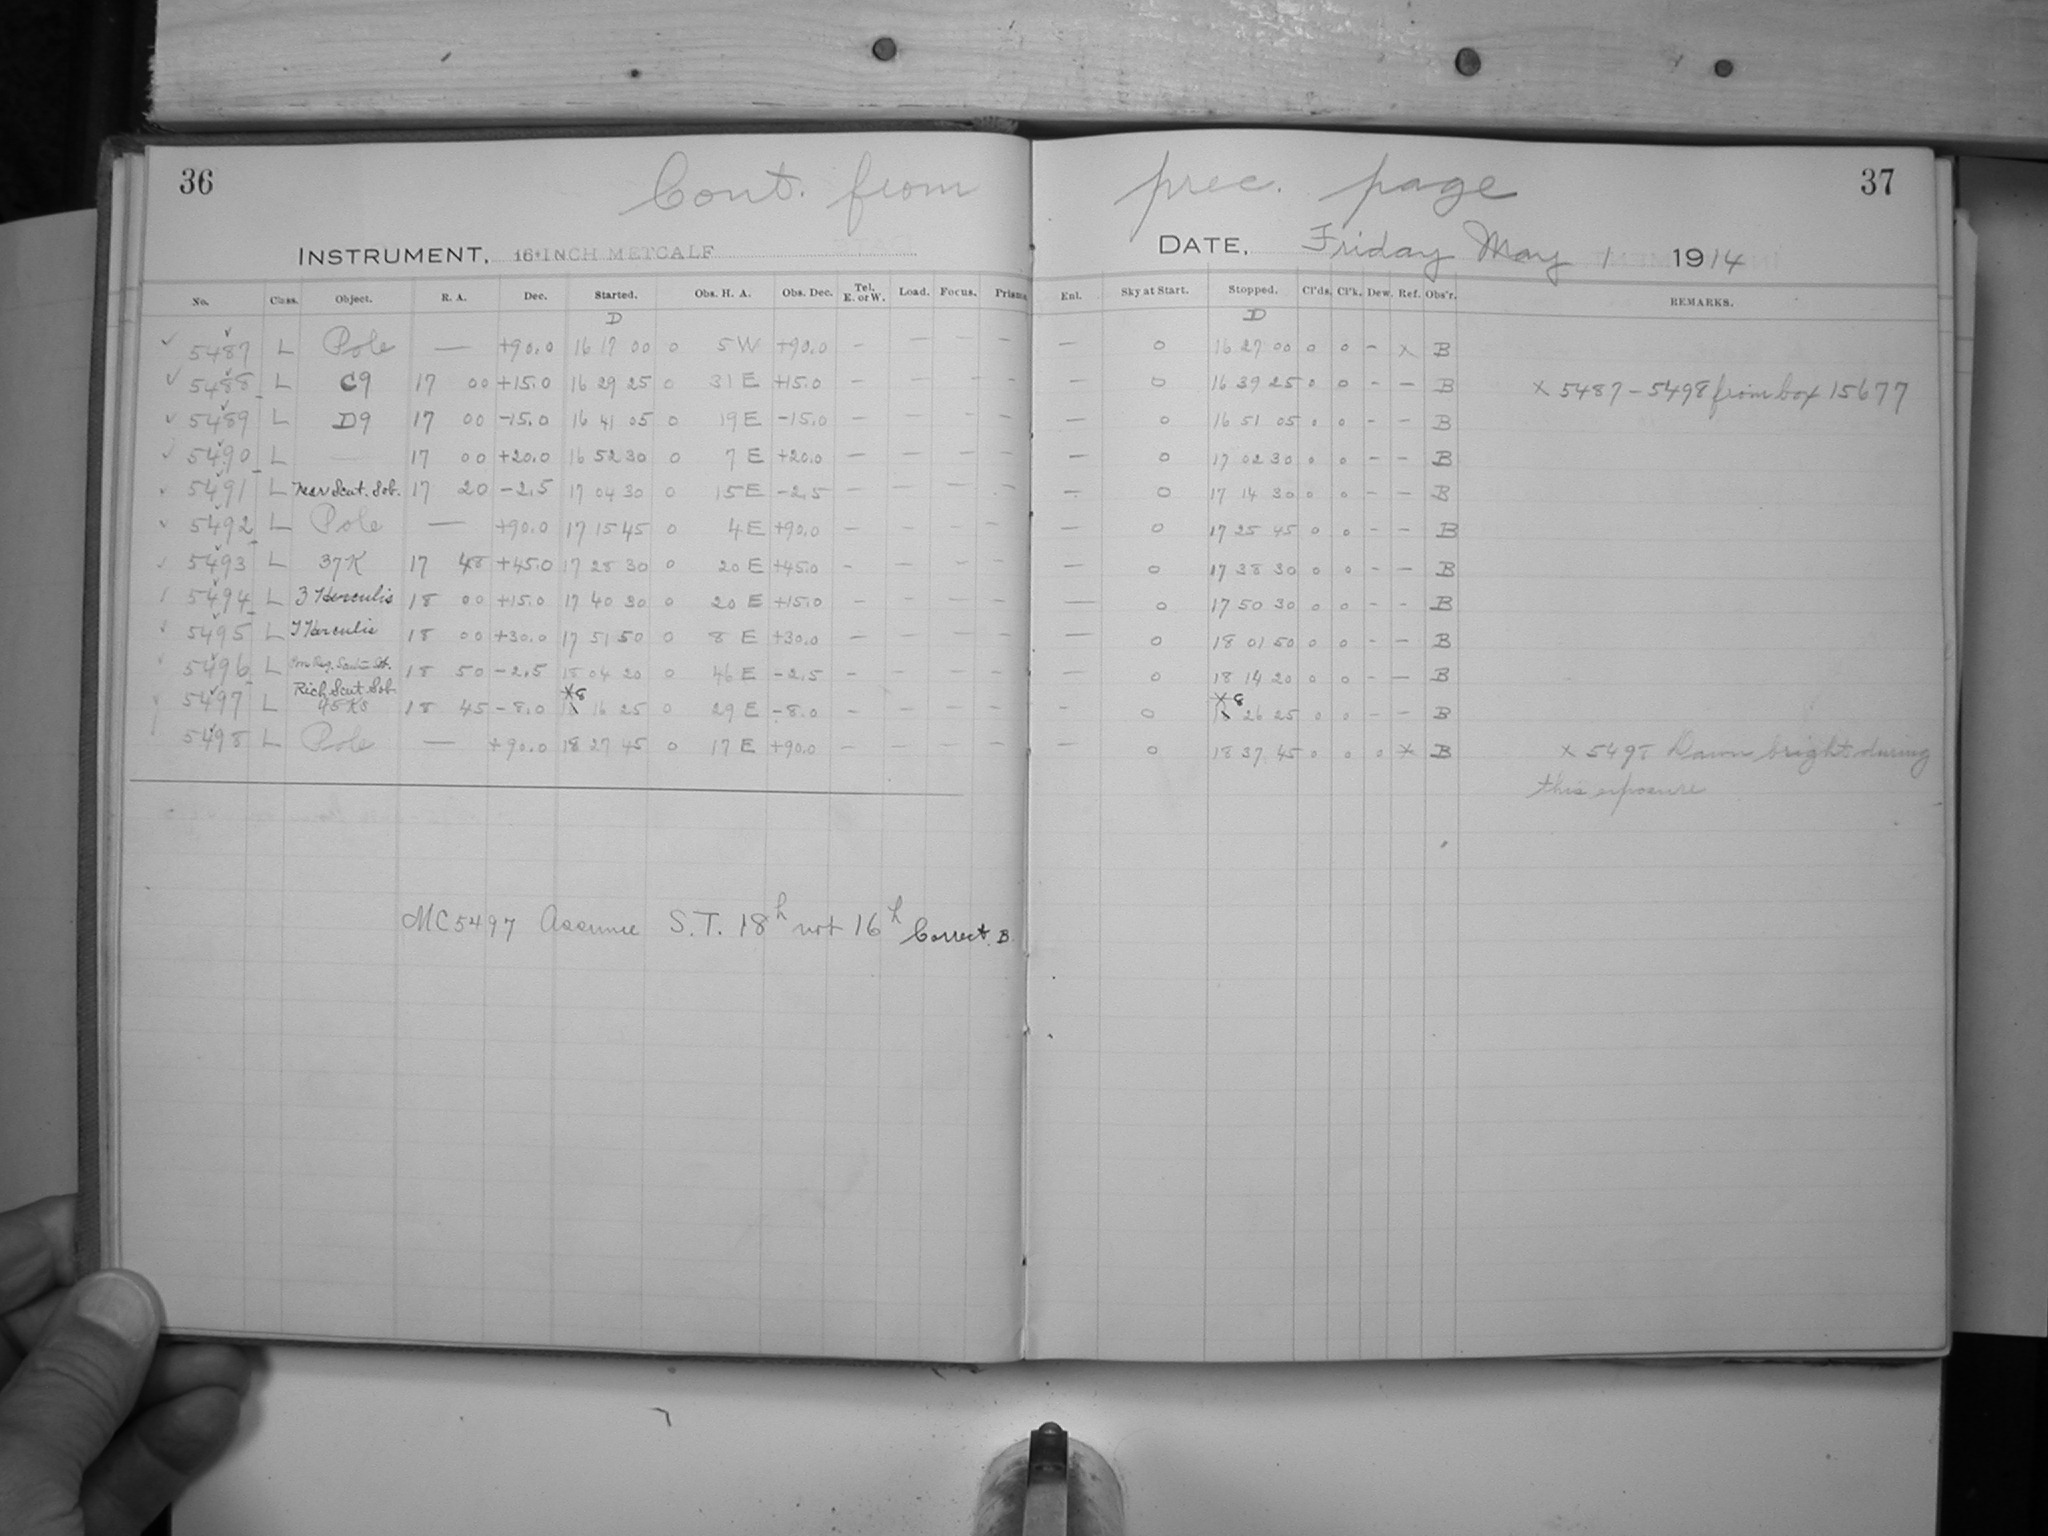 36
37
Cont. from prec. page
INSTRUMENT, 16-INCH METCALF DATE, Friday May 1 1914
No. Class. Object. R. A. Dec. Started. Obs. H. A. Obs. Dec. Tel. E. or W. Load. Focus. Prisms. Enl. Sky at Start. Stopped. Cl'ds. Cl'k. Dew. Ref. Obs'r. REMARKS.
D D
5487 L Pole — +90.0 16 17 00 0 5 W +90.0 — — — — — 0 16 27 00 0 0 - x B
5488 L C9 17 00 +15.0 16 29 25 0 31 E +15.0 — — — — — 0 16 39 25 0 0 - - B x 5487-5498 from box 15677
5489 L D9 17 00 -15.0 16 41 05 0 19 E -15.0 — — — — — 0 16 51 05 0 0 - - B
5490 L — 17 00 +20.0 16 52 30 0 7 E +20.0 — — — — — 0 17 02 30 0 0 - - B
5491 L Near Scut. Sob. 17 20 -2.5 17 04 30 0 15 E -2.5 — — — — — 0 17 14 30 0 0 - - B
5492 L Pole — +90.0 17 15 45 0 4 E +90.0 — — — — — 0 17 25 45 0 0 - - B
5493 L 37K 17 48 +45.0 17 28 30 0 20 E +45.0 — — — — — 0 17 38 30 0 0 - - B
5494 L 3 Herculis 18 00 +15.0 17 40 30 0 20 E +15.0 — — — — — 0 17 50 30 0 0 - - B
5495 L T Herculis 18 00 +30.0 17 51 50 0 8 E +30.0 — — — — — 0 18 01 50 0 0 - - B
5496 L 18 50 -2.5 18 04 20 0 46 E -2.5 — — — — — 0 18 14 20 0 0 - - B
Rich Scut. Sob x8 x8
5497 L 45K8 18 45 -8.0 16 25 0 29 E -8.0 — — — — — 0 26 25 0 0 - - B
5498 L Pole — +90.0 18 27 45 0 17 E +90.0 — — — — — 0 18 37 45 0 0 0 x B x 5498 Dawn bright during
this exposure
MC5497 Assume S.T. 18h not 16h Correct. B.